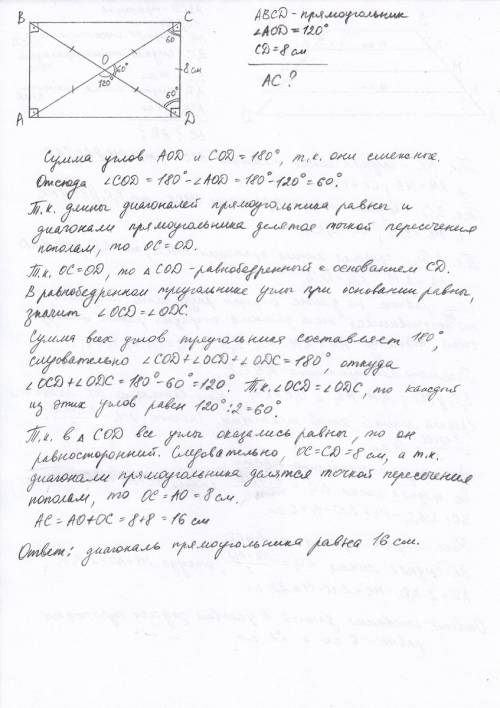 B C
ABCD - прямоугольник
∠AOD = 120°
CD = 8 см
AC ?
60
O
60°
120°
8 см
60°
A D
Сумма углов AOD и COD = 180°, т.к. они смежные.
Отсюда ∠COD = 180° - ∠AOD = 180° - 120° = 60°
Т.к. длины диагоналей прямоугольника равны и
диагонали прямоугольника делятся точкой пересечения
пополам, то OC = OD.
Т.к. OC = OD, то △ COD - равнобедренный с основанием CD.
В равнобедренном треугольнике углы при основании равны,
значит ∠OCD = ∠ODC.
Сумма всех углов треугольника составляет 180°,
следовательно ∠COD + ∠OCD + ∠ODC = 180°, откуда
∠OCD + ∠ODC = 180° - 60° = 120°. Т.к. ∠OCD = ∠ODC, то каждый
из этих углов равен 120° : 2 = 60°.
Т.к. в △ COD все углы оказались равны, то он
равносторонний. Следовательно, OC = CD = 8 см, а т.к.
диагонали прямоугольника делятся точкой пересечения
пополам, то OC = AO = 8 см.
AC = AO + OC = 8 + 8 = 16 см
Ответ: диагональ прямоугольника равна 16 см.